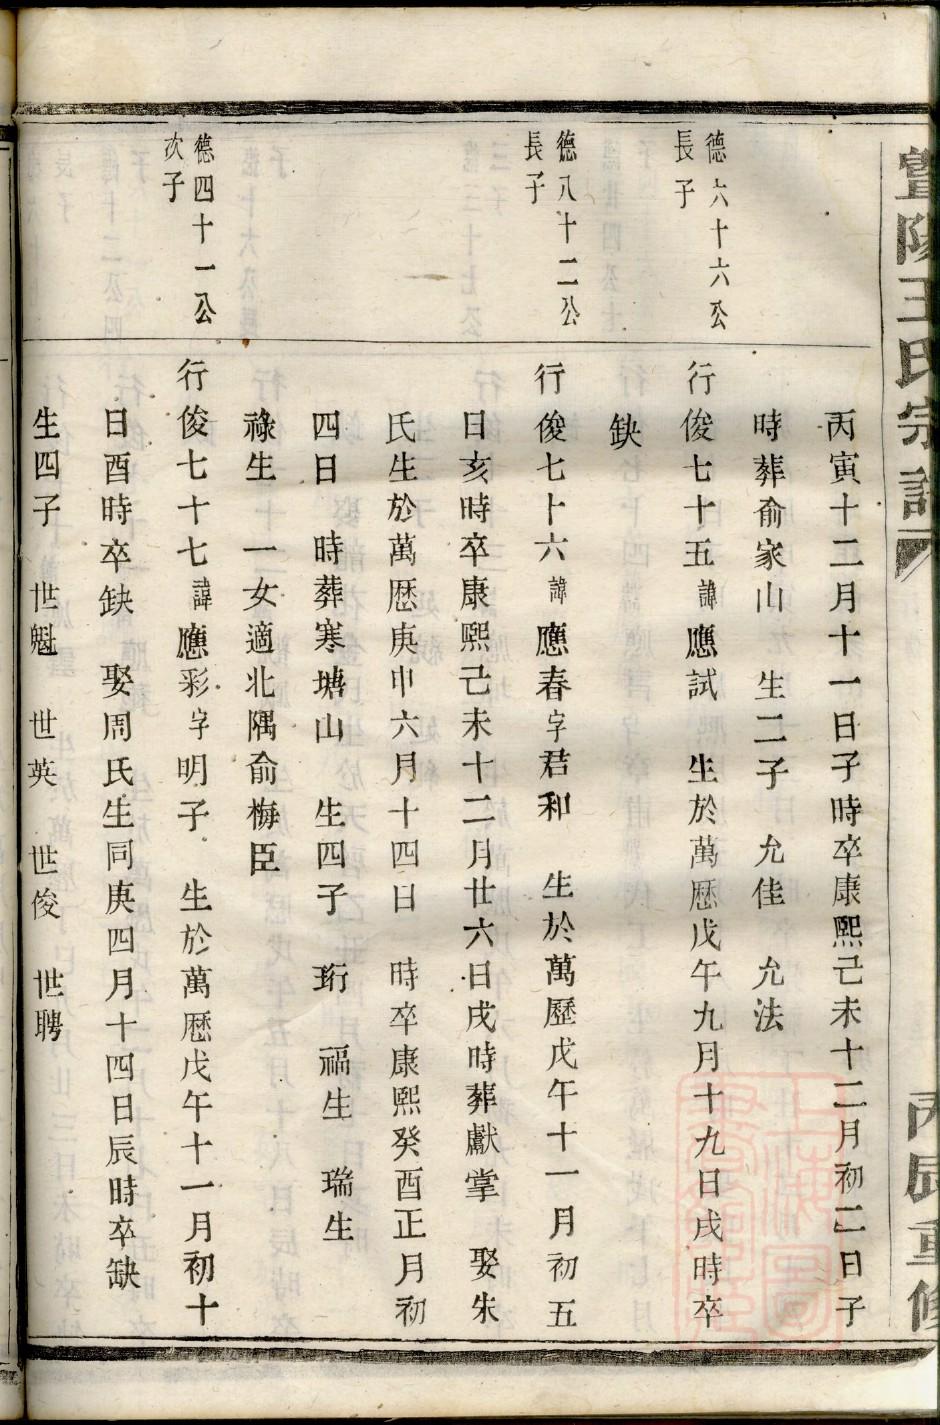 暨陽王氏宗譜
丙辰重修
丙寅十二月十一日子時卒康熙己未十二月初二日子
時葬俞家山 生二子 允佳 允法
德六十六公
長子
行俊七十五諱應試 生於萬歷戊午九月十九日戌時卒
缺
德八十二公
長子
行俊七十六諱應春字君和 生於萬歷戊午十一月初五
日亥時卒康熙己未十二月廿六日戌時葬獻掌 娶朱
氏生於萬歷庚申六月十四日 時卒康熙癸酉正月初
四日 時葬寒塘山 生四子 珩 福生 瑞生
祿生 一女適北隅俞梅臣
德四十一公
次子
行俊七十七諱應彩字明子 生於萬歷戊午十一月初十
日酉時卒缺 娶周氏生同庚四月十四日辰時卒缺
生四子 世魁 世英 世俊 世聘